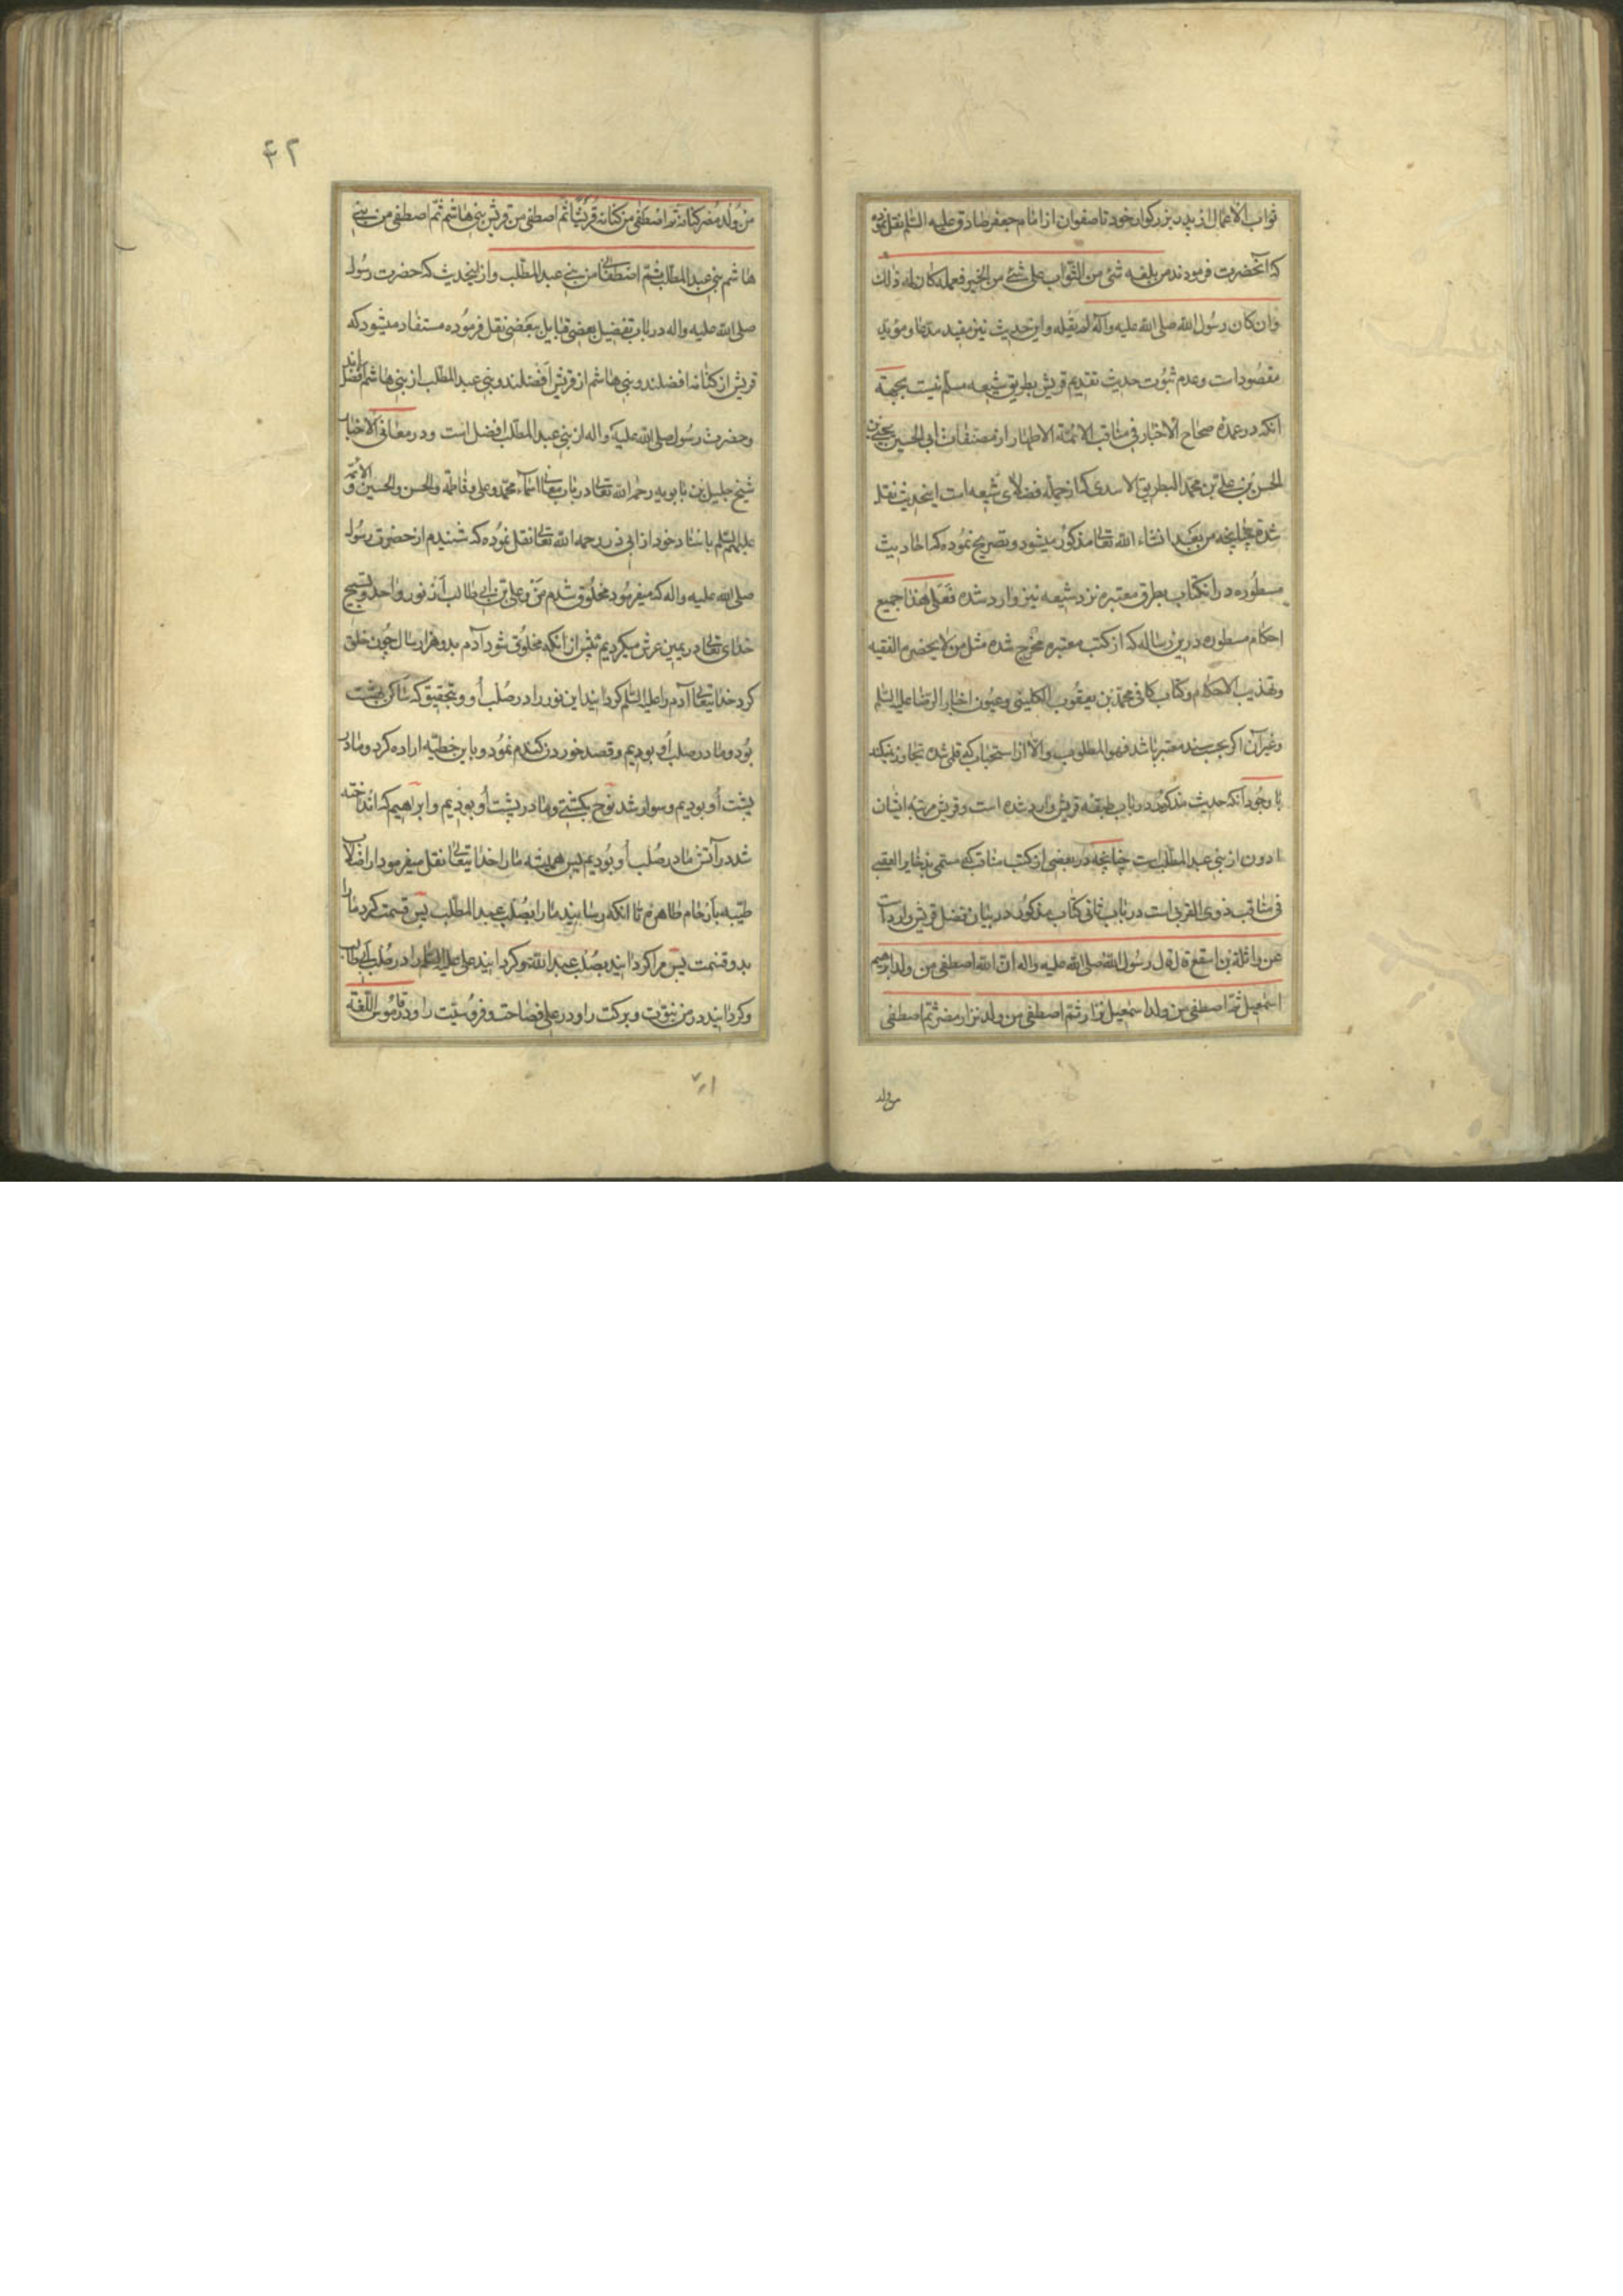 ثواب الاعمال از پدر بزرکوار خود تا صفوان از امام جعفر صادق علیه السلم نقل نموده
که آنحضرت فرمودند من بلغه شی من الثواب علی شئ من الخیر فعمله کان له ذلک
وان کان رسول الله صلی الله علیه وآله لم یقله واین حدیث نیز مفید مدعا و مؤید
مقصود است وعدم ثبوت حدیث تقدیم قریش بطریق شیعه مسلم نیست بجهة
آنکه در عمدة صحاح الاخبار فی مناقب الائمة الاطهار از مصنفات ابی الحسین یحیی بن
الحسن بن علی بن محمد البطریق الاسدی که از جمله فضلای شیعه است اینحدیث نقل
شده چنانچه من بعد انشاء الله تعالی مذکور میشود وتصریح نموده که احادیث
مسطوره در انکتاب بطرق معتبره نزد شیعه نیز وارد شده فعلی هذا جمیع
احکام مسطوره درین رساله که از کتب معتبره مخرج شده مثل من لا یحضره الفقیه
وتهذیب الاحکام وکتاب کافی محمد بن یعقوب الکلینی وعیون اخبار الرضا علیه السلم
وغیر آن اکر بحسب سند معتبر باشد فهو المطلوب والا از استحباب که قلمی شده تجاوز نمیکند
با وجود آنکه حدیث مذکور در باب طبقه قریش وارد شده است وقریش مرتبه ایشان
ادون از بنی عبد المطلب است چنانچه در بعضی از کتب مناقب که مسمی بذخایر العقبی
فی مناقب ذوی القربی است در باب ثانی کتاب مذکور در بیان تفضل قریش وارد است
عن واثلة بن اسقع قال قال رسول الله صلی الله علیه واله ان الله اصطفی من ولد ابرهیم
اسمعیل ثم اصطفی من ولد اسمعیل نزار ثم اصطفی من ولد نزار مضر ثم اصطفی
من ولد
۴۲
من ولد مضر کنانه ثم اصطفی من کنانة قریشا ثم اصطفی من قریش بنی هاشم ثم اصطفی من بنی
هاشم بنی عبد المطلب ثم اصطفانی من بنی عبد المطلب واز اینحدیث که حضرت رسول
صلی الله علیه واله در باب تفضیل بعضی قبایل ببعضی نقل فرموده مستفاد میشود که
قریش از کنانه افضلند وبنی هاشم از قریش افضلند وبنی عبد المطلب از بنی هاشم افضل اند
وحضرت رسول صلی الله علیه واله از بنی عبد المطلب افضل است ودر معانی الاخبار
شیخ جلیل بن بابویه رحمه الله تعالی در باب معانی اسماء محمد وعلی وفاطمه والحسن والحسین والائمه
علیهم السلم باسناد خود از ابی ذر رحمه الله تعالی نقل نموده که شنیدم از حضرت رسول
صلی الله علیه واله که میفرمود مخلوق شدم من وعلی بن ابی طالب از نور واحد وتسبیح
خدای تعالی در یمین عرش میکردیم پیش از آنکه مخلوق شود آدم بدو هزار سال چون خلق
کرد خدایتعالی آدم را علیه السلم کردانید این نور را در صلب او وبتحقیق که ساکن بهشت
بود وما در صلب او بودیم وقصد خوردن کندم نمود وباین خطیه اراده کرد وما در
پشت او بودیم وسوار شد نوح بکشتی وما در پشت او بودیم وابرهیم که انداخته
شد در آتش ما در صلب او بودیم پس همیشه ما را خدایتعالی نقل میفرمود از اصلاب
طیبه بارحام طاهره تا آنکه رسانید ما را بصلب عبد المطلب پس قسمت کرد ما را
بدو قسمت پس مرا کردانید بصلب عبد الله وکردانید علی علیه السلم را در صلب ابی طالب
وکردانید در من نبوت وبرکت را ودر علی فصاحت وفروسیت را ودر قاموس اللغة